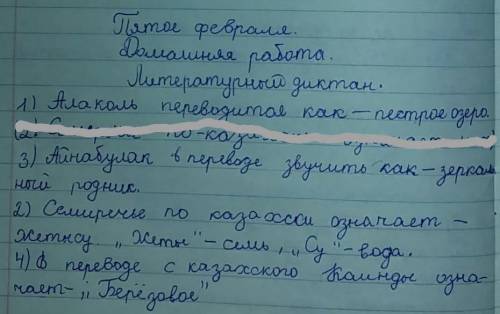 Пятое февраля.
Домашняя работа.
Литературный диктан.
1) Алаколь переводится как – пестрое озеро
3) Айнабулак в переводе звучить как – зеркаль
ный родник.
2) Семиречье по казахсси означает –
Жетысу. „Жеты" – семь, „Су" – вода.
4) В переводе с казахского Каинды озна-
чает – „Берёзовое"